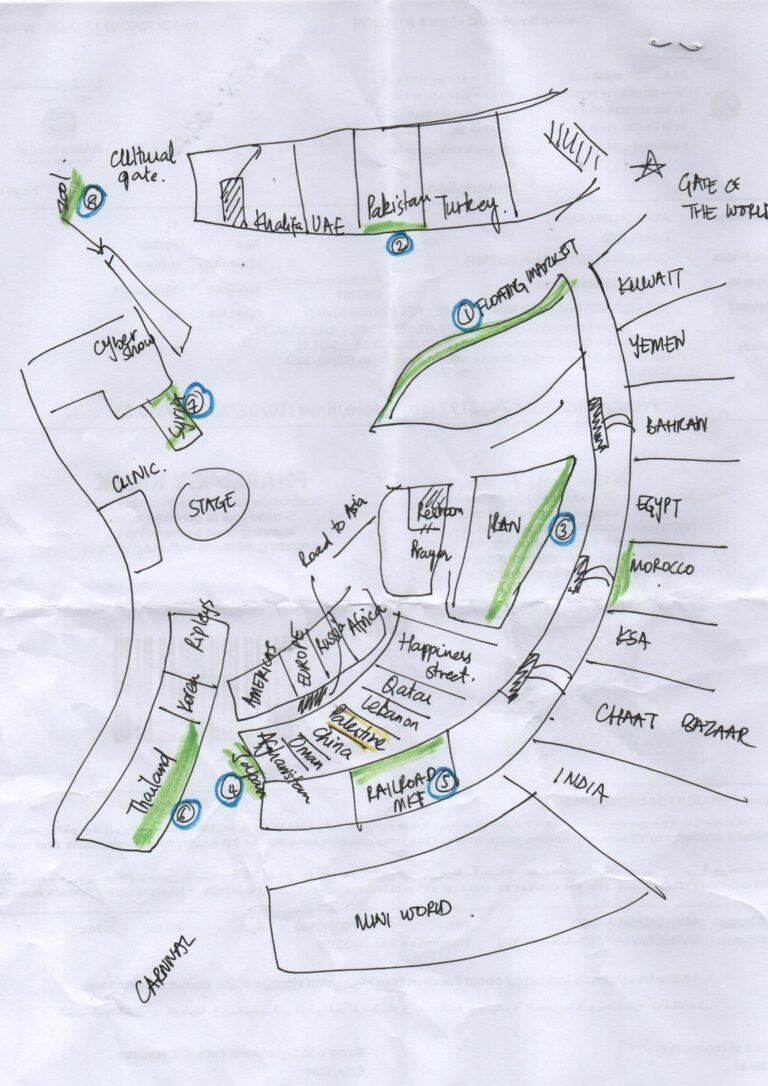 Cultural
gate.
Khalifa
UAE
Pakistan
Turkey.
GATE OF
THE WORLD
8
2
1 FLOATING MARKET
KUWAIT
YEMEN
BAHRAIN
EGYPT
MOROCCO
KSA
CHAAT BAZAAR
INDIA
Cyber
show
Syria
7
CLINIC.
STAGE
Road to Asia
Restroom
Prayer
IRAN
3
Ripleys
Korea
Thailand
6
AMERICAS
EUROPE
Russia
Africa
Happiness
street.
Qatar
Lebanon
Palestine
China
Oman
Afghanistan
Japan
4
RAILROAD
MKT
5
MINI WORLD
CARNIVAL